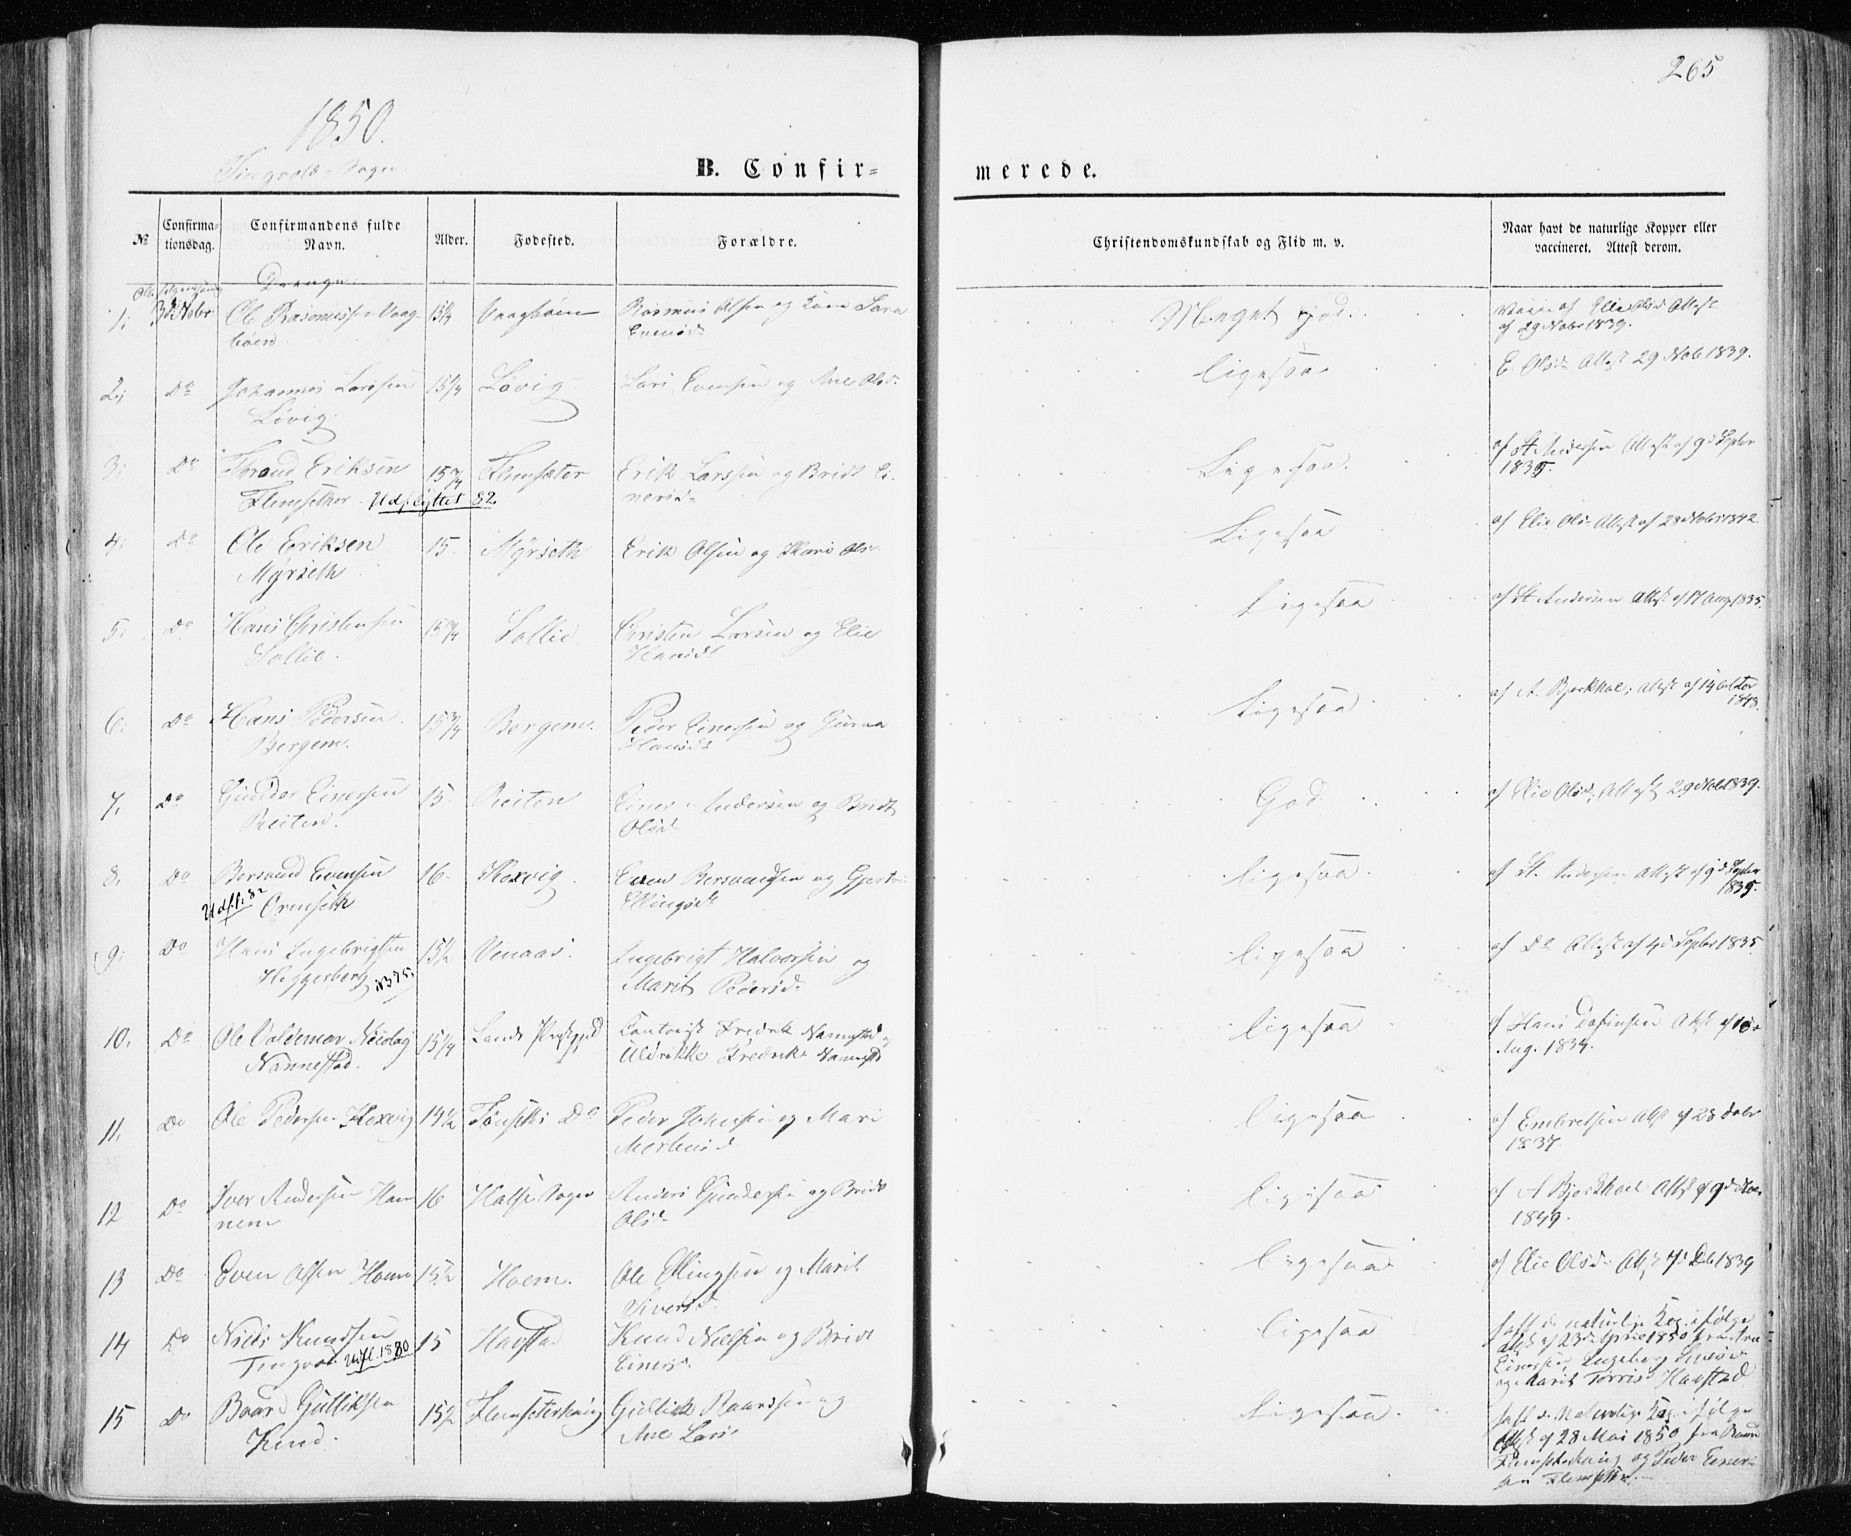 265
1850.
Tingvold Sogn.
B. Confir-
merede.
№
Confirma-
tionsdag.
Confirmandens fulde
Navn.
Alder.
Fødested.
Forældre.
Christendomskundskab og Flid m. v.
Naar havt de naturlige Kopper eller
vaccineret. Attest derom.
Drenge.
1. Ole Rasmussen Vaag- 15¼ Vaagbøen Rasmus Olsen og Lara Meget god. af Elie Olsd Attest
bøen Evensd af 29 Novbr 1839.
2. Do Johannes Larssen 15¼ Løvig Lars Evensen og Ane Olsd. ligesaa E. Olsd Attest 29 Novb 1839.
Løvig.
3. Do Thrond Eriksen 15¾ Flemsæter Erik Larssen og Bridt Ei- Ligesaa af St. Andersen Attest af 9d Septbr
Flemsether. Udflyttet 82. nersd. 1835.
4. Do Ole Eriksen 15. Myrseth Erik Olsen og Kari Ols Ligesaa af Elie Olsd Attest af 28 Novbr 1842
Myrseth
5. Do Hans Christensen 15¾ Sollie Christen Larsen og Elie Ligesaa af St Andersen Attest af 17 Aug 1835.
Sollie. Hansd
6. Do Hans Pedersen 15¾ Bergem. Peder Einersen og Guraa Ligesaa af A. Bjørkhol; Attest af 14
Bergem. Hansd 1848.
7. Do Gunder Einersen 15. Reiten Einer Andersen og Bridt God af Elie Olsd; Attest 29 Novb 1839.
Reiten. Olsd
8. Do Bersvend Evensen 16. Hoxvig Even Bersvendsen og Gjertr ligesaa af St. Andersen Attest af 9d Septbr
Udfl. 82 Ormseth Ellingsd 1835.
9. Do Hans Ingebrigtsen 15½ Venaas. Ingebrigt Halvorsen og ligesaa af Do Attest af 4d Septbr 1835.
Heggerberg Marit Pedersd.
10. Do Ole Valdemar Nicolay 15¼ Lands Præstegjd Fredrik Nannestad og ligesaa af Hans Attst af 18
Nannestad. Uldrikke Fredrikke Nannestd Aug. 1834.
11. Do Ole Pedersen Hoxvig 14½ Tønsets Do Peder Johnsen og Mari ligesaa af Embretsen Attst af 28
1837.
12 Do Iver Andersen Ham 16 Halse Sogn Anders Gundersen og Bridt ligesaa af A Bjørkhol Attst af 9d
nem Olsd 1849.
13 Do Even Olsen Hoem 15½ Hoem. Ole Ellingsen og Marit ligesaa af Elie Olsd Attst 7d Deb 1839
Siversd.
14 Do Niels Knudsen 15 Havstad Knud Nielsen og Bridt ligesaa haft de naturlige Kop. ifølge
Tingvold Udfl. 1880 Einersd. Attst af 23d April 1850 fra
Einersen, Ingeborg
og Marit Torrisd Havstad
15 Do Baard Gulliksen 15½ Flemseterhaug Gullick Baardsen og Ligesaa haft de Naturlige Kop ifølge
Ane Larsd Attst af 28 Mai 1850 fra
Flemseterhaug og Peder Einer-
sen Flemsether.